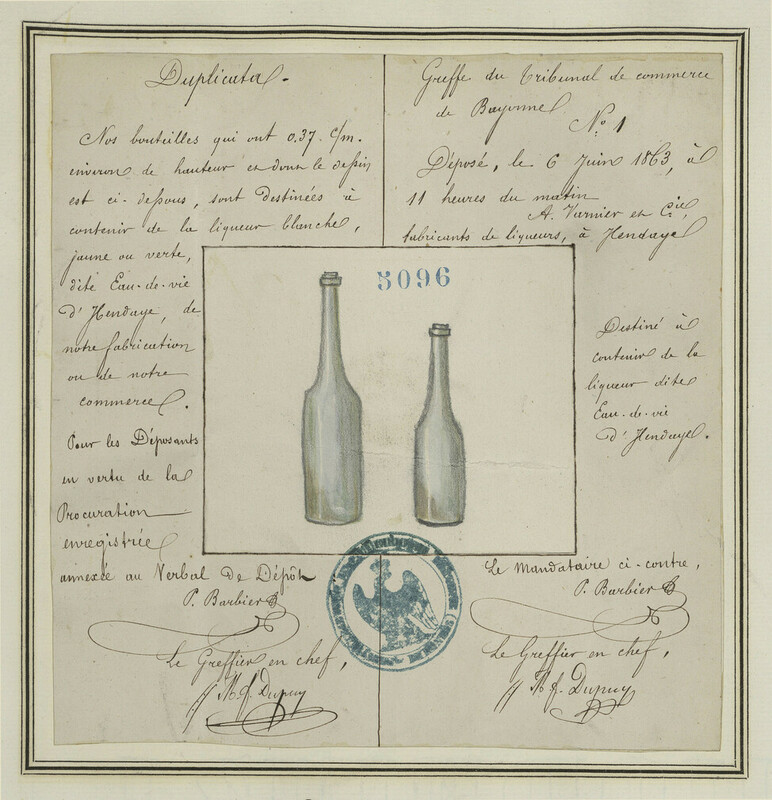 Duplicata.
Nos bouteilles qui ont 0,37 c/m.
environ de hauteur et dont le dessin
est ci-dessous, sont destinées à
contenir de la liqueur blanche,
jaune ou verte,
dite Eau-de-vie
d'Hendaye, de
notre fabrication
ou de notre
commerce.
Pour les Déposants
en vertu de la
Procuration
enregistrée
annexée au Verbal de Dépôt
P. Barbier
Le Greffier en chef,
Dupuy
Greffe du tribunal de commerce
de Bayonne
Nº 1
Déposé, le 6 Juin 1863, à
11 heures du matin
A. Varnier et Cie,
fabricants de liqueurs, à Hendaye
5096
Destiné à
contenir de la
liqueur dite
Eau-de-vie
d'Hendaye.
Le Mandataire ci-contre,
P. Barbier
Le Greffier en chef,
Dupuy